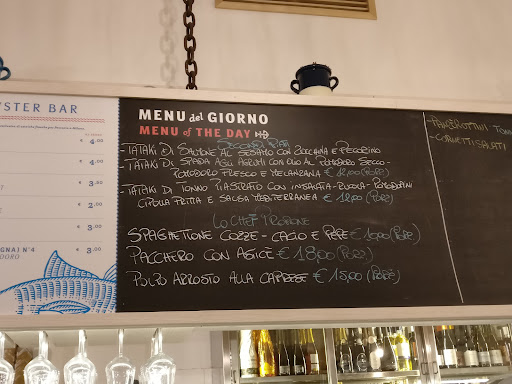 YSTER BAR
€ 4.00
€ 4.00
€ 3.50
€ 2.00
€ 3.00
GNA) N°4
DORO
€ 3.00
MENU del GIORNO
MENU of THE DAY
SECONDI PIATTI
- TATAKI DI SALMONE AL SESAMO CON ZUCCHINA E PECORINO
- TATAKI DI SPADA AGLI AGRUMI CON OLIO AL POMODORO SECCO -
POMODORO FRESCO E MELANZANA € 12,00 (PORZ)
- TATAKI DI TONNO PIASTRATO CON INSALATA - RUCOLA - POMODORINI
CIPOLLA FRITTA E SALSA MEDITERRANEA € 12,00 (PORZ)
LO CHEF PROPONE
SPAGHETTONE COZZE - CACIO E PEPE € 10,00 (PORZ)
PACCHERO CON ASTICE € 18,00 (PORZ)
POLPO ARROSTO ALLA CAPRESE € 15,00 (PORZ)
TONN
- CORNETTI SALATI